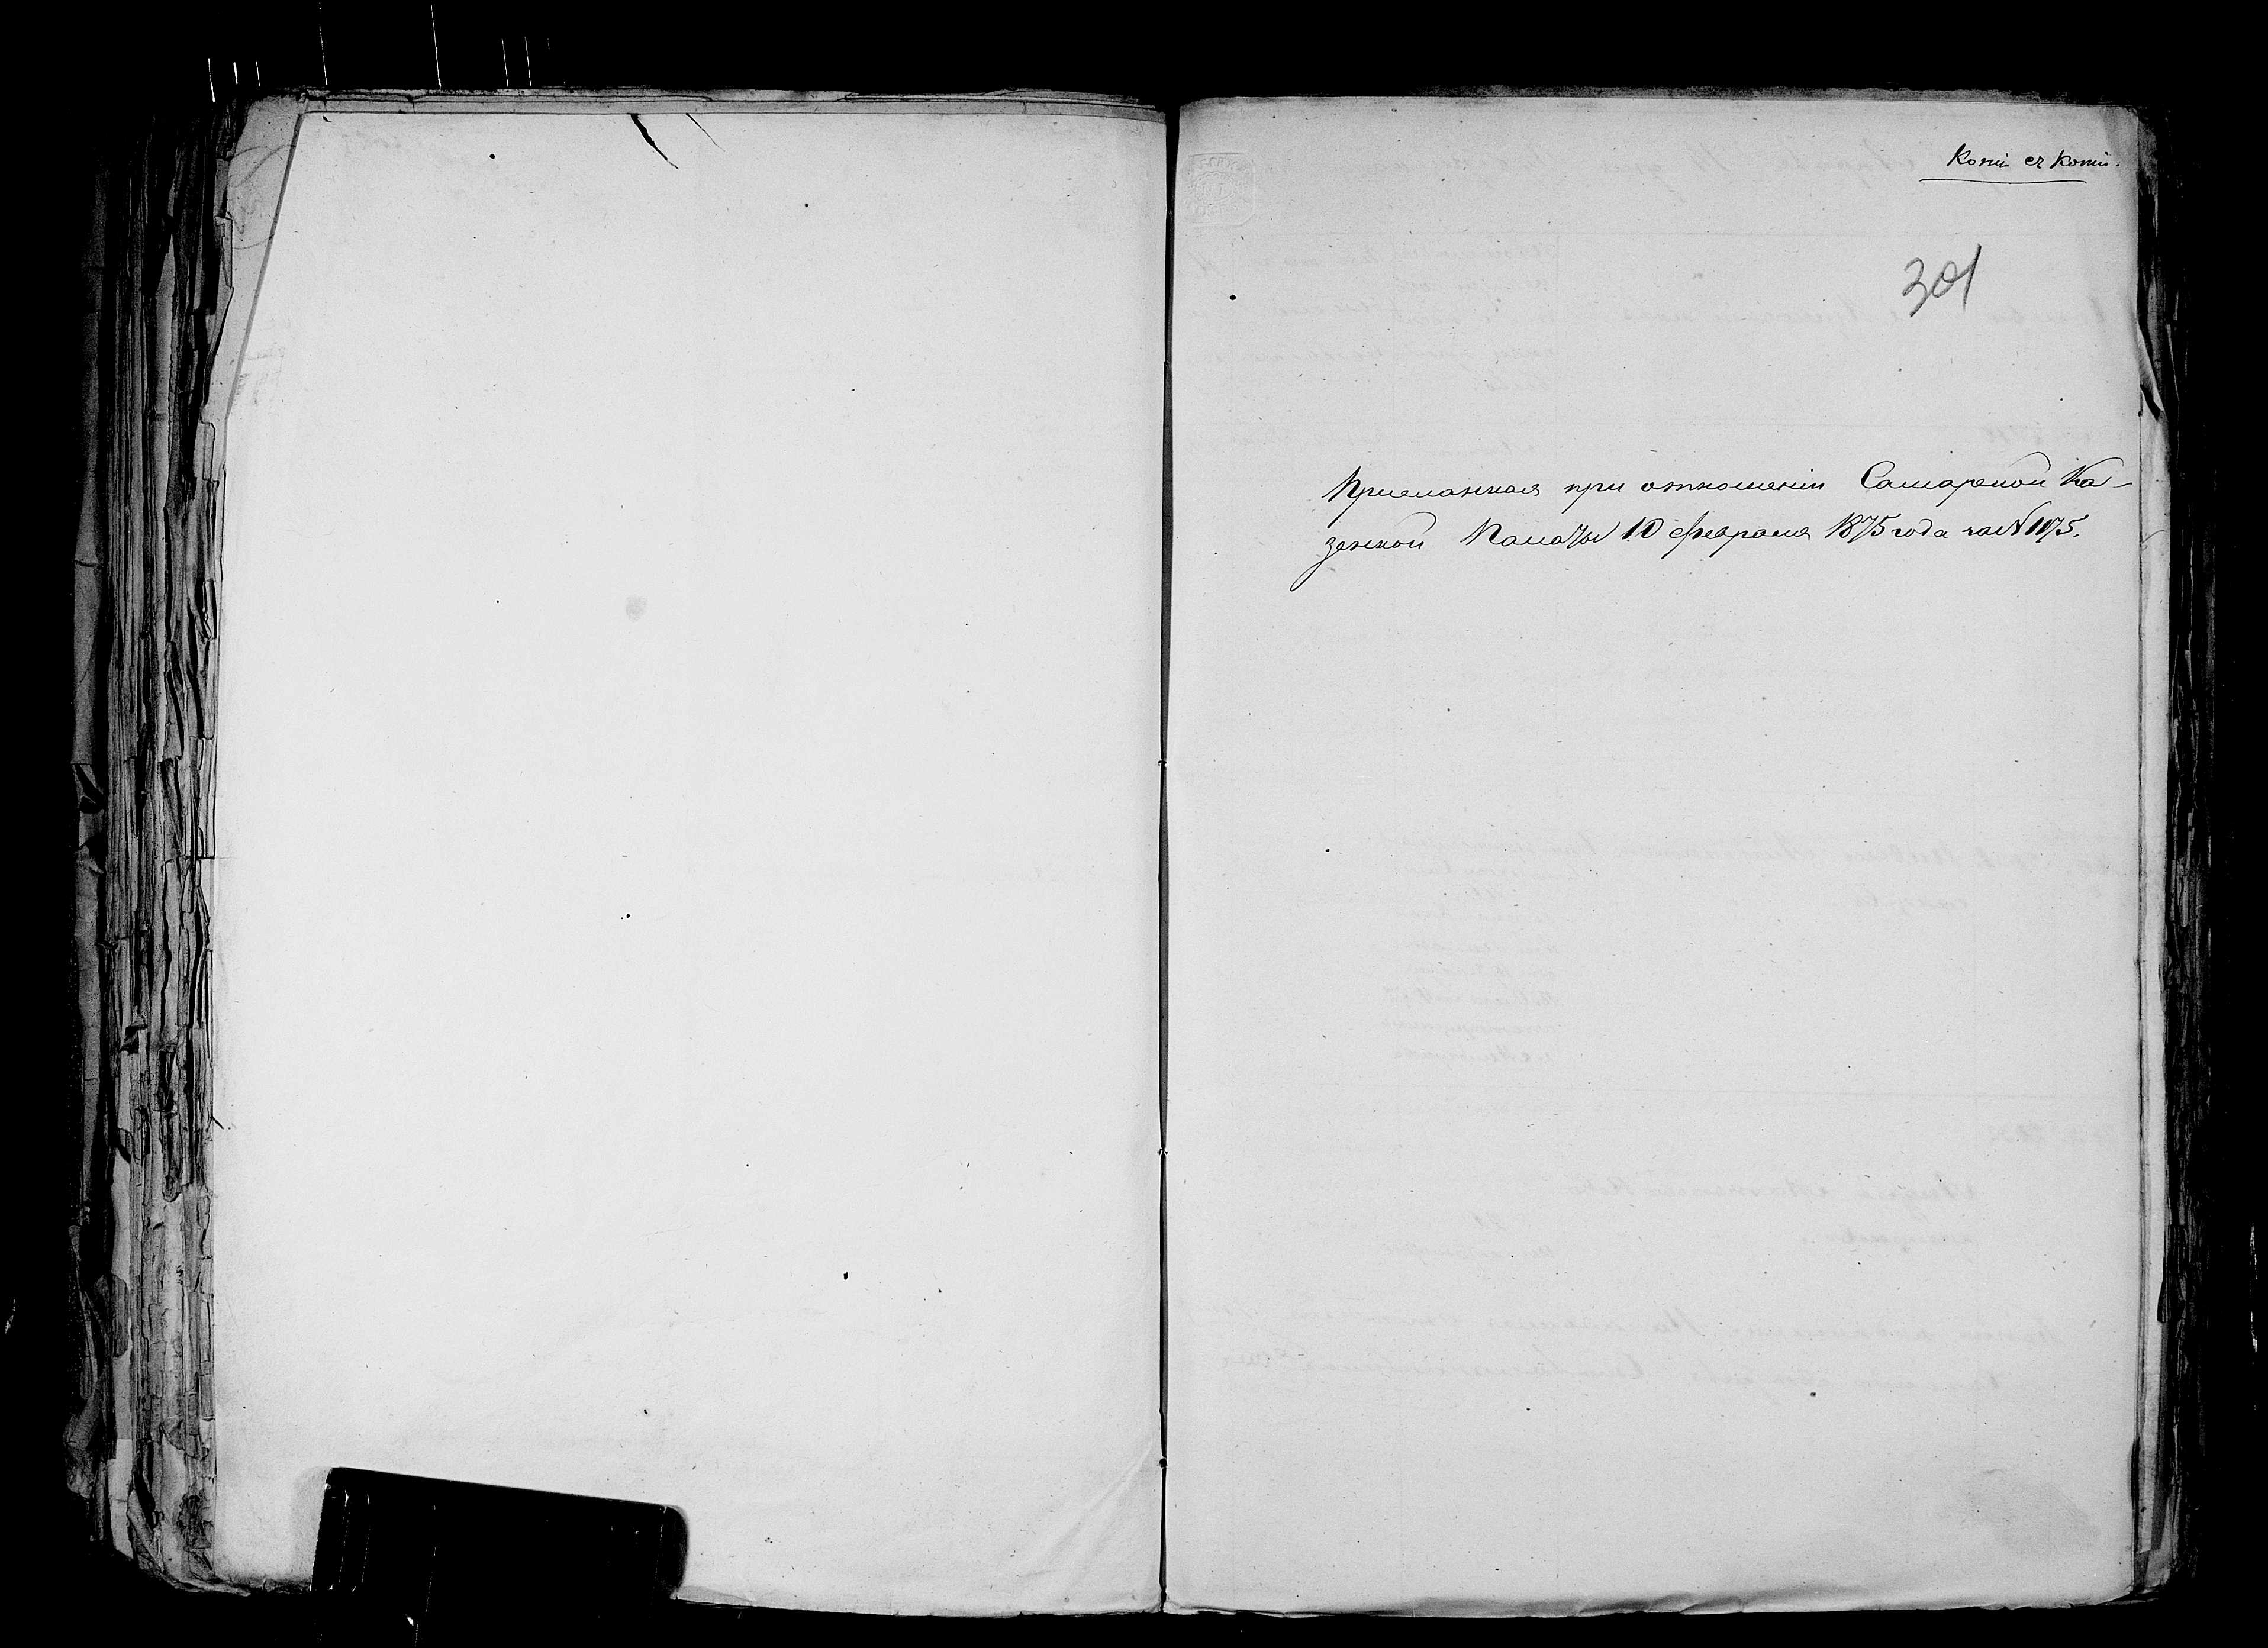 Копія съ Копіи.
301
Присланная при отношеніи Самарской Ка-
зенной Палаты 10 февраля 1875 года за № 1175.